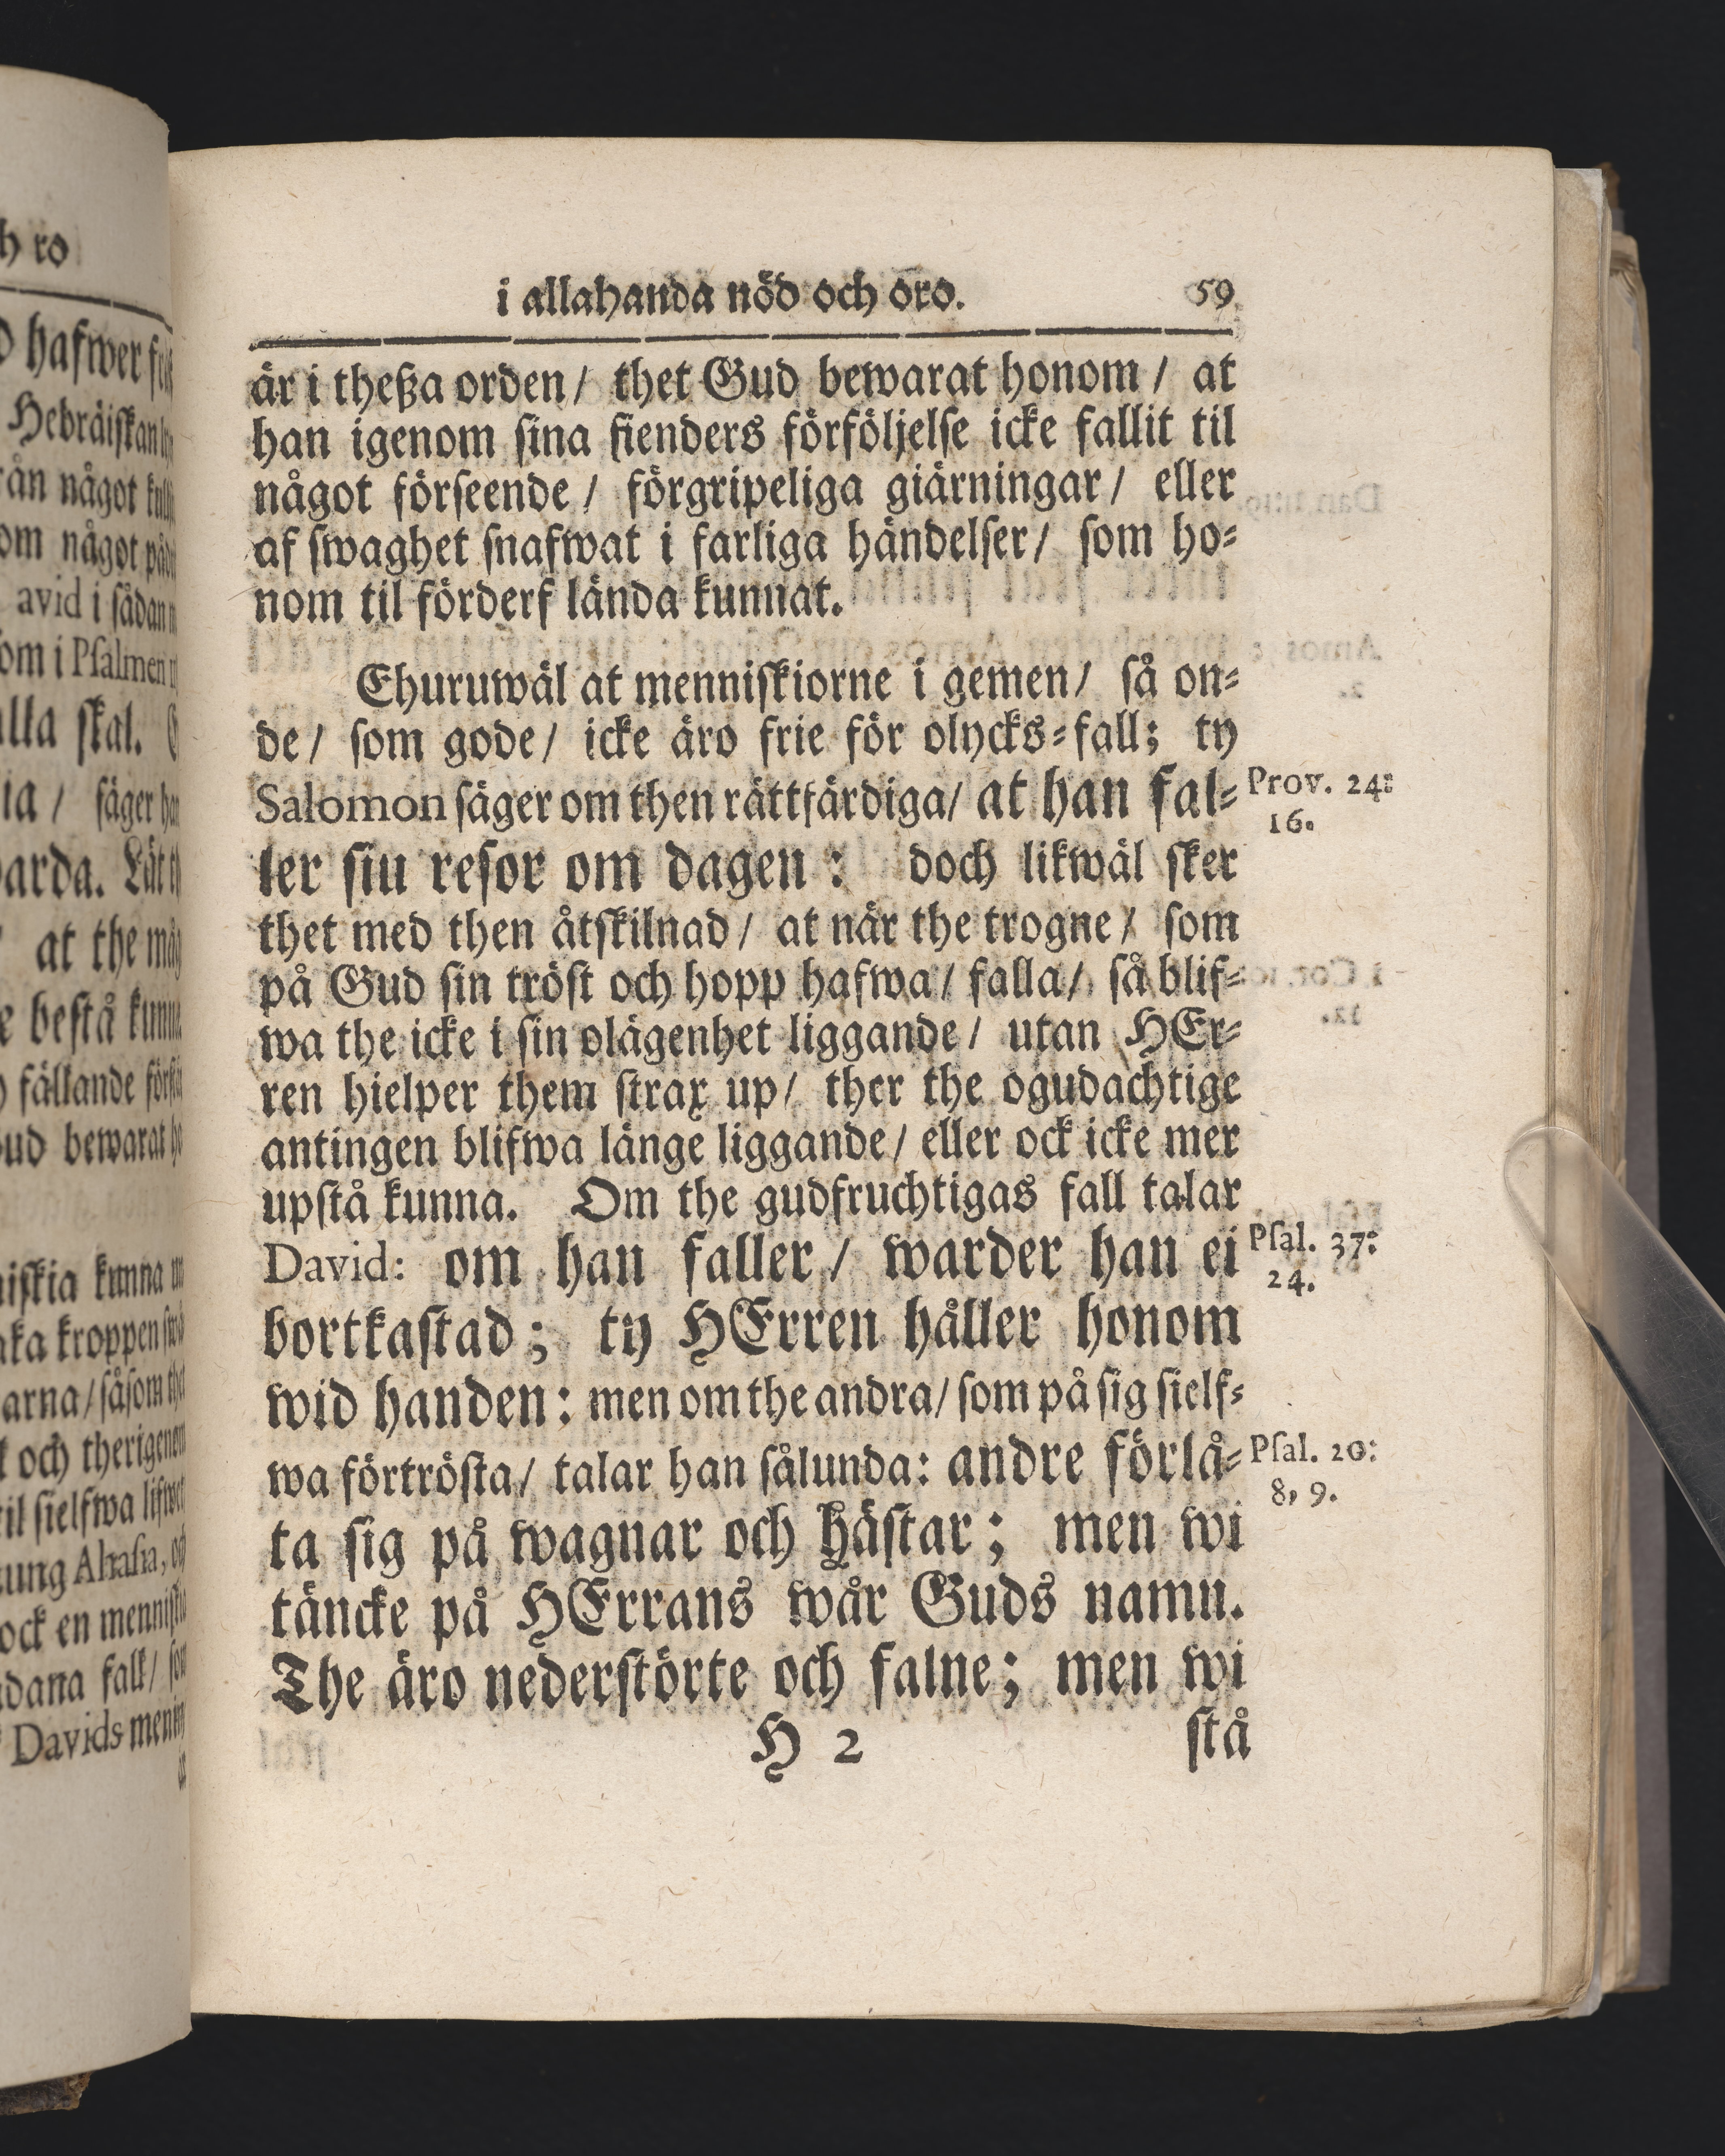 i allahanda nöd och oro. 59
är i theßa orden / thet Gud bewarat honom / at
han igenom ſina fienders förföljelſe icke fallit til
något förſeende / förgripeliga giärningar / eller
af ſwaghet ſnafwat i farliga händelſer / ſom ho⸗
nom til förderf lända kunnat.
Ehuruwäl at menniſkiorne i gemen / ſå on⸗
de / ſom gode / icke äro frie för olycks⸗fall; ty
Salomon ſäger om then rättfärdiga / at han fal⸗
Prov. 24:
16.
ler ſiu reſor om dagen : doch likwäl ſker
thet med then åtſkilnad / at när the trogne / ſom
på Gud ſin tröſt och hopp hafwa / falla / ſå blif⸗
wa the icke i ſin olägenhet liggande / utan HEr⸗
ren hielper them ſtrax up / ther the ogudachtige
antingen blifwa länge liggande / eller ock icke mer
upſtå kunna. Om the gudfruchtigas fall talar
David: om han faller / warder han ei
Pſal. 37:
24.
bortkaſtad ; ty HErren håller honom
wid handen : men om the andra / ſom på ſig ſielf⸗
wa förtröſta / talar han ſålunda: andre förlå⸗
Pſal. 20:
8, 9.
ta ſig på wagnar och häſtar ; men wi
täncke på HErrans wår Guds namn.
The äro nederſtörte och falne ; men wi
H 2 ſtå
h ro
hafwer
Hebräiſkan
något
om något
avid i ſådan
om i Pſalmen
ſkal.
ſäger
at the
beſtå
fällande
bewarat
kunna
kroppen
ſåſom
och therigenom
til ſielfwa
Ahaſia,
ock en
fall /
Davids